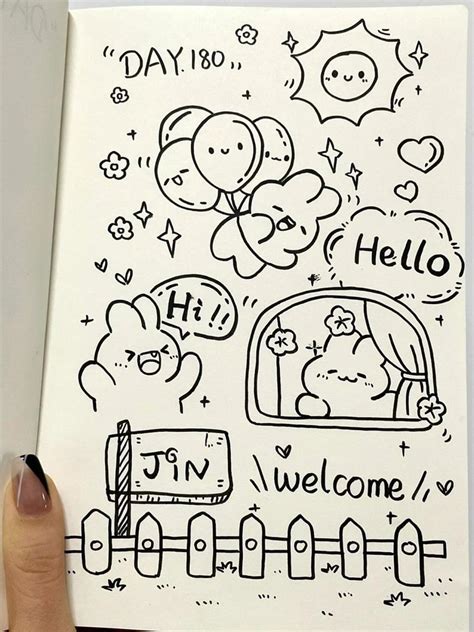 "DAY.180"
Hello
Hi!!
JiN
welcome